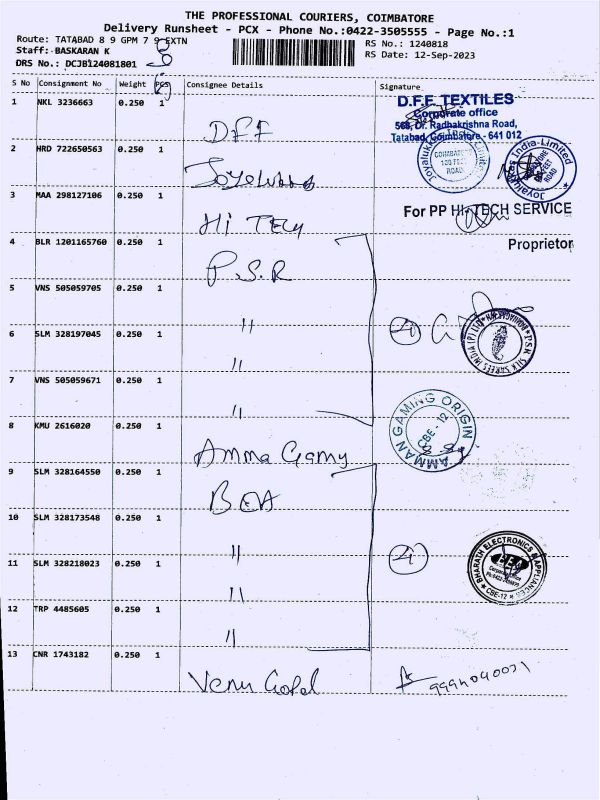 THE PROFESSIONAL COURIERS, COIMBATORE
Delivery Runsheet - PCX - Phone No.:0422-3505555 - Page No.:1
Route: TATABAD 8 9 GPM 7 9 EXTN
RS No.: 1240818
Staff: BASKARAN K
RS Date: 12-Sep-2023
DRS No.: DCJB124081801
S No Consignment No Weight PCS Consignee Details Signature
1 NKL 3236663 0.250 1 DFF
D.F.F. TEXTILES
Corporate office
568, Dr. Radhakrishna Road,
Tatabad, Coimbatore - 641 012
2 HRD 722650563 0.250 1 Joyalukkas
COIMBATORE
100 FEET
ROAD
Joyalukkas India Limited
3 MAA 298127106 0.250 1 Hi Tech
For PP HI-TECH SERVICE
Proprietor
4 BLR 1201165760 0.250 1 P.S.R
5 VNS 505059705 0.250 1 "
4
P.S.R SILK SAREES INDIA (P) LTD
6 SLM 328197045 0.250 1 "
7 VNS 505059671 0.250 1 "
8 KMU 2616020 0.250 1 Amma Gamy
AMMAN GAMING ORIGIN
CBE - 12
9 SLM 328164550 0.250 1 BEA
10 SLM 328173548 0.250 1 "
11 SLM 328218023 0.250 1 "
4
BHARATH ELECTRONICS & APPLIANCES
BEA
Corporate Office
CBE-12
12 TRP 4485605 0.250 1 "
13 CNR 1743182 0.250 1 Venu Gopal